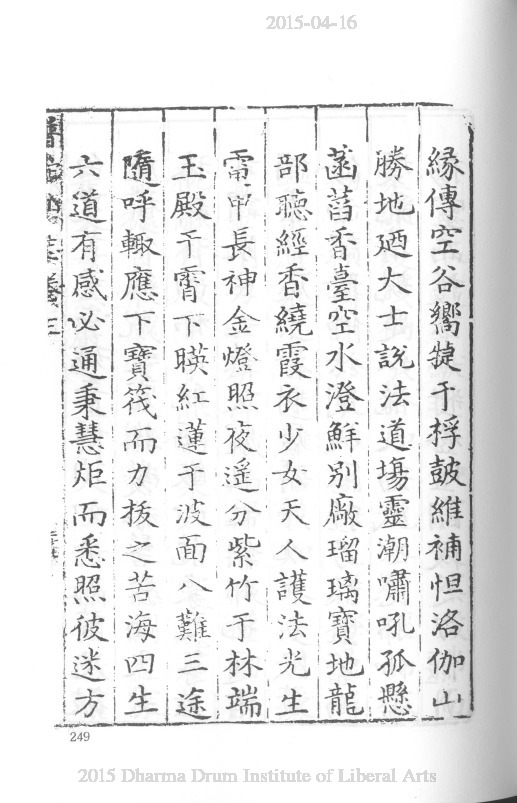 2015-04-16
緣傳空谷嚮㨗于桴鼓維補怛洛伽山
勝地廼大士說法道場靈潮嘯吼孤懸
菡萏香臺空水澄鮮別廠瑠璃寶地龍
部聽經香繞霞衣少女天人護法光生
甲長神金燈照夜遙分紫竹于林端
玉殿干霄下暎紅蓮于波面八難三途
隨呼輒應下寶筏而力拔之苦海四生
六道有感必通秉慧炬而悉照彼迷方
249
2015 Dharma Drum Institute of Liberal Arts